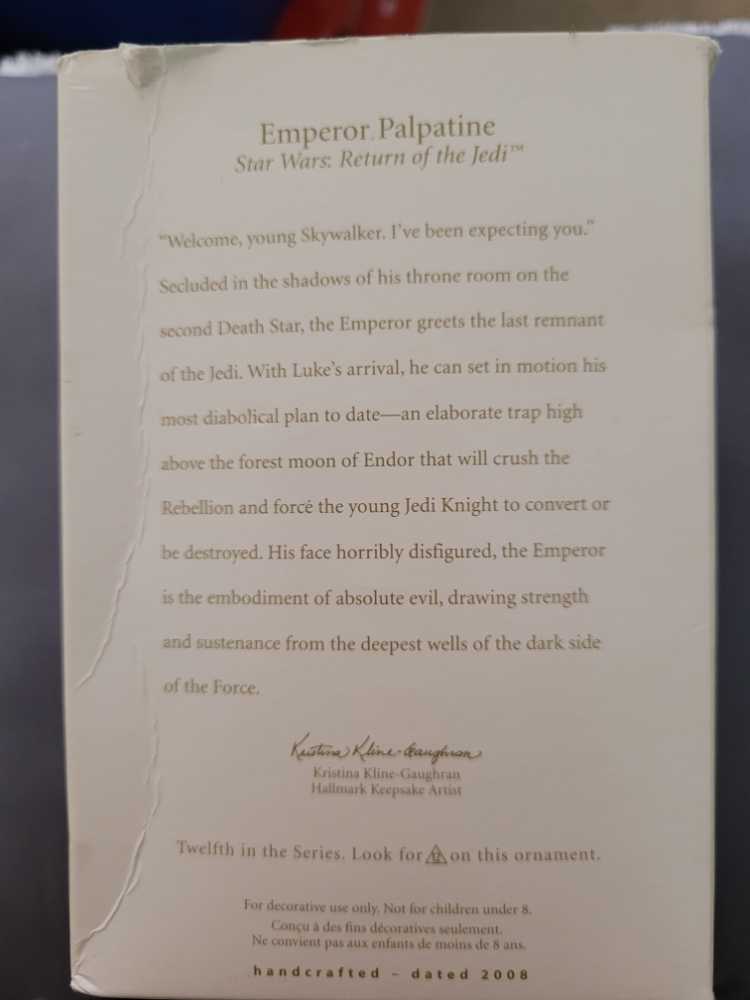 Emperor Palpatine
Star Wars: Return of the Jedi™
"Welcome, young Skywalker. I've been expecting you."
Secluded in the shadows of his throne room on the
second Death Star, the Emperor greets the last remnant
of the Jedi. With Luke's arrival, he can set in motion his
most diabolical plan to date—an elaborate trap high
above the forest moon of Endor that will crush the
Rebellion and force the young Jedi Knight to convert or
be destroyed. His face horribly disfigured, the Emperor
is the embodiment of absolute evil, drawing strength
and sustenance from the deepest wells of the dark side
of the Force.
Kristina Kline-Gaughran
Kristina Kline-Gaughran
Hallmark Keepsake Artist
Twelfth in the Series. Look for 12 on this ornament.
For decorative use only. Not for children under 8.
Conçu à des fins décoratives seulement.
Ne convient pas aux enfants de moins de 8 ans.
handcrafted – dated 2008